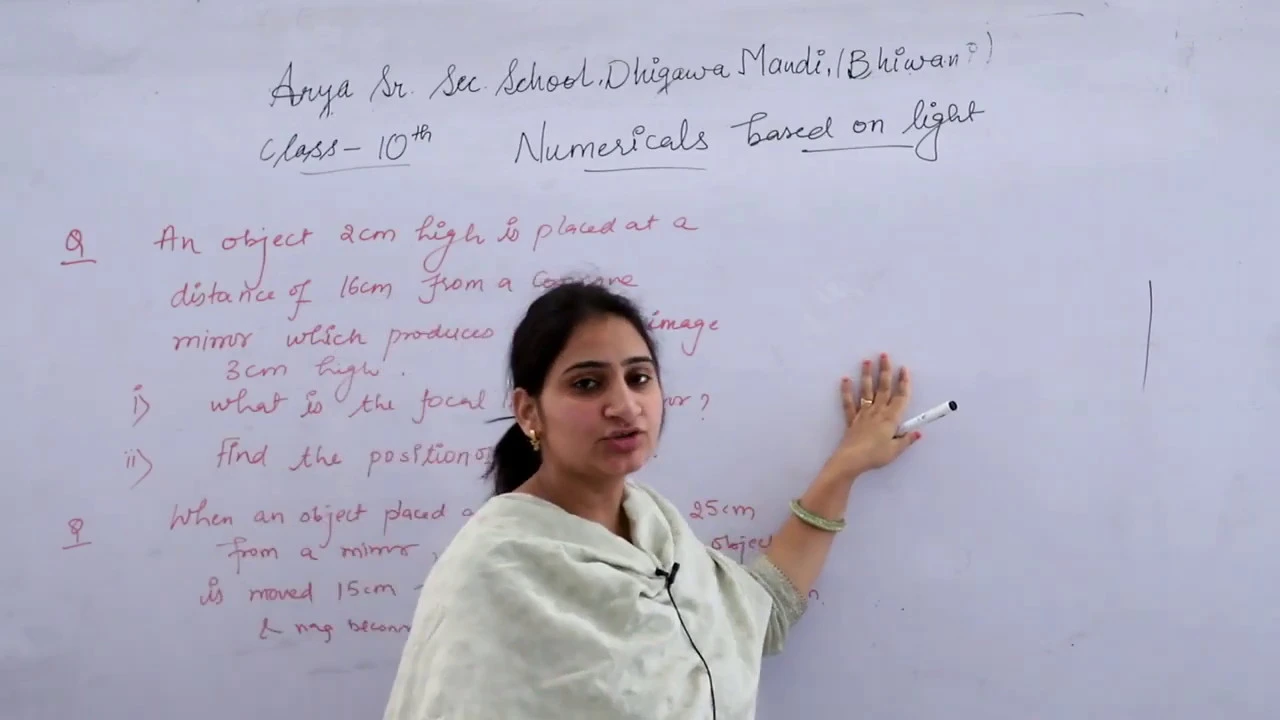 Arya Sr. Sec. School, Dhigawa Mandi, (Bhiwani)
Class - 10th Numericals based on light
Q An object 2cm high is placed at a
distance of 16cm from a Concave
mirror which produces image
3cm high.
i) what is the focal ?
ii) Find the position of
Q When an object placed 25cm
from a mirror, object
is moved 15cm
& mag becom